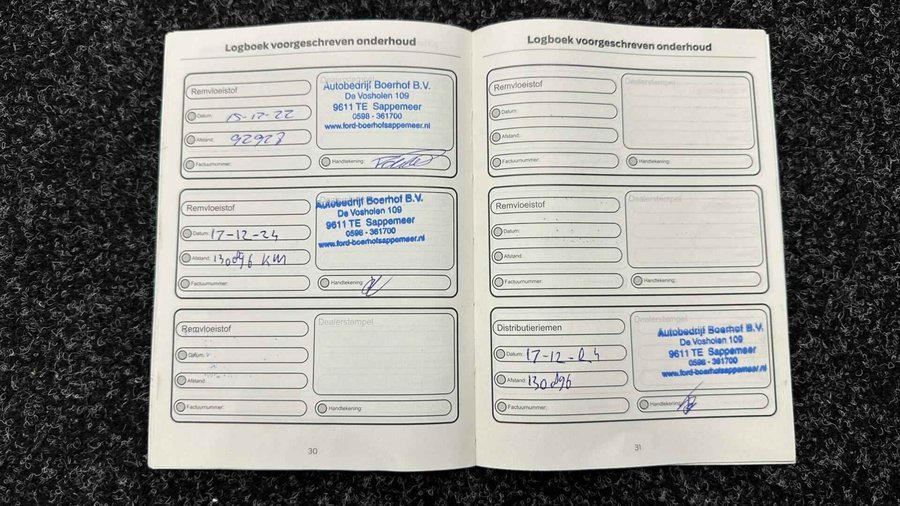 Logboek voorgeschreven onderhoud
Remvloeistof
Datum: 15-12-22
Afstand: 92928
Factuurnummer:
Dealerstempel
Autobedrijf Boerhof B.V.
De Vosholen 109
9611 TE Sappemeer
0598 - 361700
www.ford-boerhofsappemeer.nl
Handtekening:
Remvloeistof
Datum: 17-12-24
Afstand: 130896 KM
Factuurnummer:
Autobedrijf Boerhof B.V.
De Vosholen 109
9611 TE Sappemeer
0598 - 361700
www.ford-boerhofsappemeer.nl
Handtekening:
Remvloeistof
Datum:
Afstand:
Factuurnummer:
Dealerstempel
Handtekening:
30
Logboek voorgeschreven onderhoud
Remvloeistof
Datum:
Afstand:
Factuurnummer:
Dealerstempel
Handtekening:
Remvloeistof
Datum:
Afstand:
Factuurnummer:
Dealerstempel
Handtekening:
Distributieriemen
Datum: 17-12-24
Afstand: 130896
Factuurnummer:
Dealerstempel
Autobedrijf Boerhof B.V.
De Vosholen 109
9611 TE Sappemeer
0598 - 361700
www.ford-boerhofsappemeer.nl
Handtekening:
31